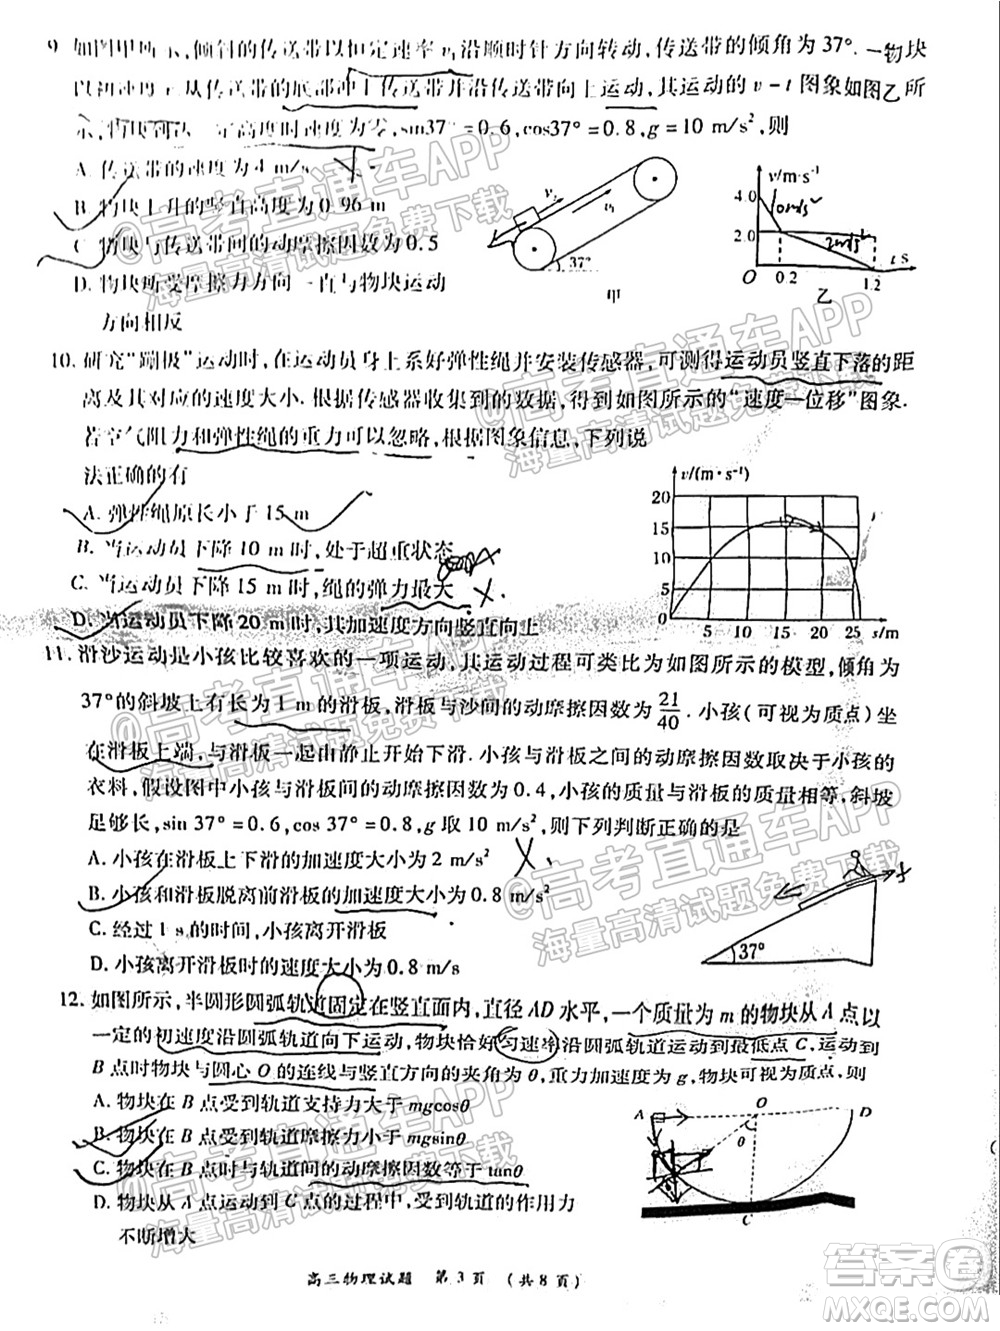 9. 如图甲所示,倾斜的传送带以恒定速率 v₁ 沿顺时针方向转动,传送带的倾角为37°.一物块
以初速度 v 从传送带的底部冲上传送带并沿传送带向上运动,其运动的 v-t 图象如图乙所
示,物块到达一定高度时速度为零,sin37°=0.6,cos37°=0.8,g=10 m/s²,则
A. 传送带的速度为 4 m/s
B. 物块上升的竖直高度为 0.96 m
C. 物块与传送带间的动摩擦因数为 0.5
D. 物块所受摩擦力方向一直与物块运动
方向相反
v₀
v₁
37°
甲
v/m·s⁻¹
4.0
2.0
O
0.2
1.2
t/s
乙
10m/s²
2m/s²
10. 研究“蹦极”运动时,在运动员身上系好弹性绳并安装传感器,可测得运动员竖直下落的距
离及其对应的速度大小.根据传感器收集到的数据,得到如图所示的“速度—位移”图象.
若空气阻力和弹性绳的重力可以忽略,根据图象信息,下列说
法正确的有
A. 弹性绳原长小于 15 m
B. 当运动员下降 10 m 时,处于超重状态
C. 当运动员下降 15 m 时,绳的弹力最大
D. 当运动员下降 20 m 时,其加速度方向竖直向上
v/(m·s⁻¹)
20
15
10
5
0
5 10 15 20 25 s/m
11. 滑沙运动是小孩比较喜欢的一项运动,其运动过程可类比为如图所示的模型,倾角为
37°的斜坡上有长为 1 m 的滑板,滑板与沙间的动摩擦因数为 21/40.小孩(可视为质点)坐
在滑板上端,与滑板一起由静止开始下滑.小孩与滑板之间的动摩擦因数取决于小孩的
衣料,假设图中小孩与滑板间的动摩擦因数为 0.4,小孩的质量与滑板的质量相等,斜坡
足够长,sin 37°=0.6,cos 37°=0.8,g 取 10 m/s²,则下列判断正确的是
A. 小孩在滑板上下滑的加速度大小为 2 m/s²
B. 小孩和滑板脱离前滑板的加速度大小为 0.8 m/s²
C. 经过 1 s 的时间,小孩离开滑板
D. 小孩离开滑板时的速度大小为 0.8 m/s
37°
f
12. 如图所示,半圆形圆弧轨道固定在竖直面内,直径 AD 水平,一个质量为 m 的物块从 A 点以
一定的初速度沿圆弧轨道向下运动,物块恰好匀速率沿圆弧轨道运动到最低点 C,运动到
B 点时物块与圆心 O 的连线与竖直方向的夹角为 θ,重力加速度为 g,物块可视为质点,则
A. 物块在 B 点受到轨道支持力大于 mgcosθ
B. 物块在 B 点受到轨道摩擦力小于 mgsinθ
C. 物块在 B 点时与轨道间的动摩擦因数等于 tanθ
D. 物块从 A 点运动到 C 点的过程中,受到轨道的作用力
不断增大
A
O
D
θ
C
高三物理试题 第 3 页 (共 8 页)
@高考直通车APP
海量高清试题免费下载
@高考直通车APP
海量高清试题免费下载
@高考直通车APP
海量高清试题免费下载
@高考直通车APP
海量高清试题免费下载
@高考直通车APP
海量高清试题免费下载
答案圈
MXQE.COM